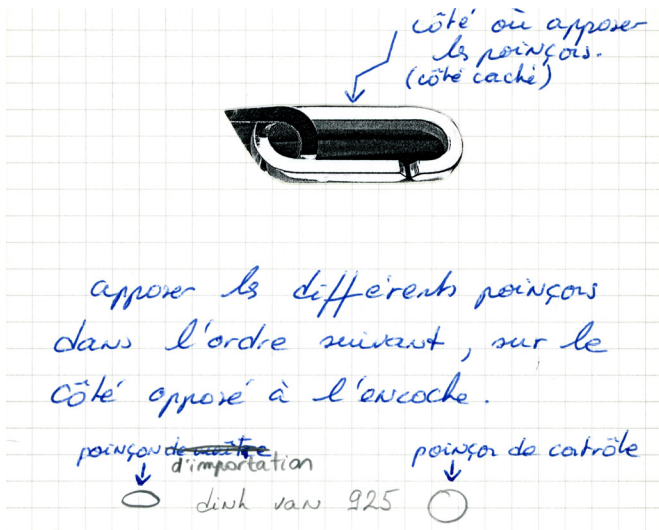 côté où apposer
les poinçons.
(côté caché)
apposer les différents poinçons
dans l'ordre suivant, sur le
côté opposé à l'encoche.
poinçon de maître
d'importation
poinçon de contrôle
dinh van 925